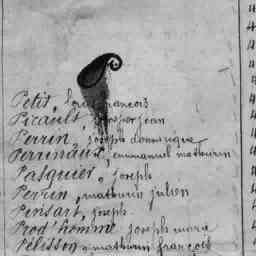 Petit, louis francois
Picault, jean
Perrin, joseph dominique
Perrinaux, emmanuel mathurin
Pasquier, joseph
Perrin, mathurin julien
Pinsart, joseph
Prod'homme joseph marie
Pélisson, mathurin françois